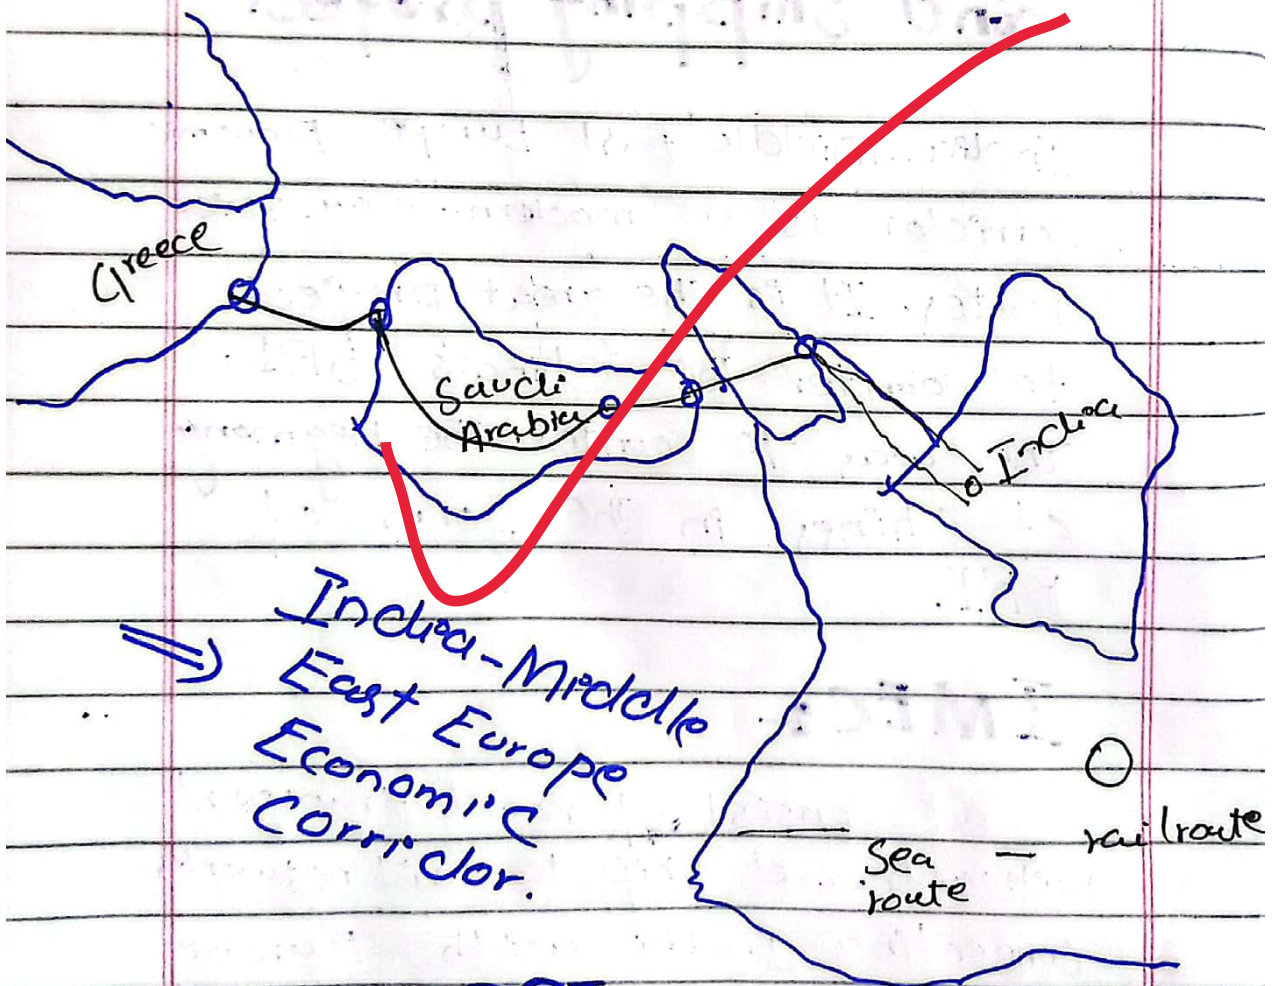 Greece
Saudi
Arabia
India
India-Middle
East Europe
Economic
Corridor.
Sea
route
railroute